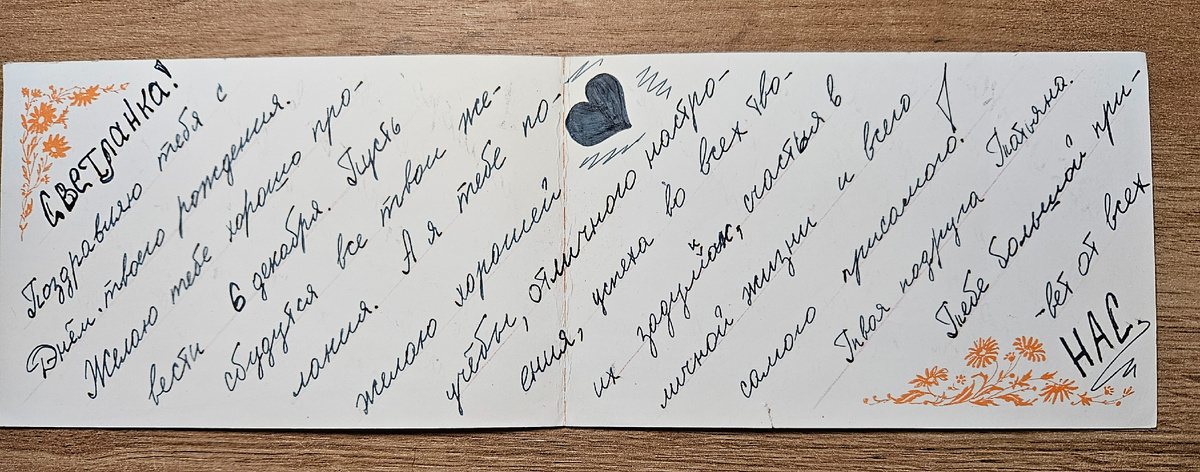 Светланка!
Поздравляю тебя с
Днём твоего рождения.
Желаю тебе хорошо про-
вести 6 декабря. Пусть
сбудутся все твои же-
лания. А я тебе по-
желаю хорошей
учёбы, отличного настро-
ения, успеха во всех тво-
их задумках, счастья в
личной жизни и всего
самого присамого!
Твоя подруга Татьяна.
Тебе большой при-
-вет от всех
НАС.